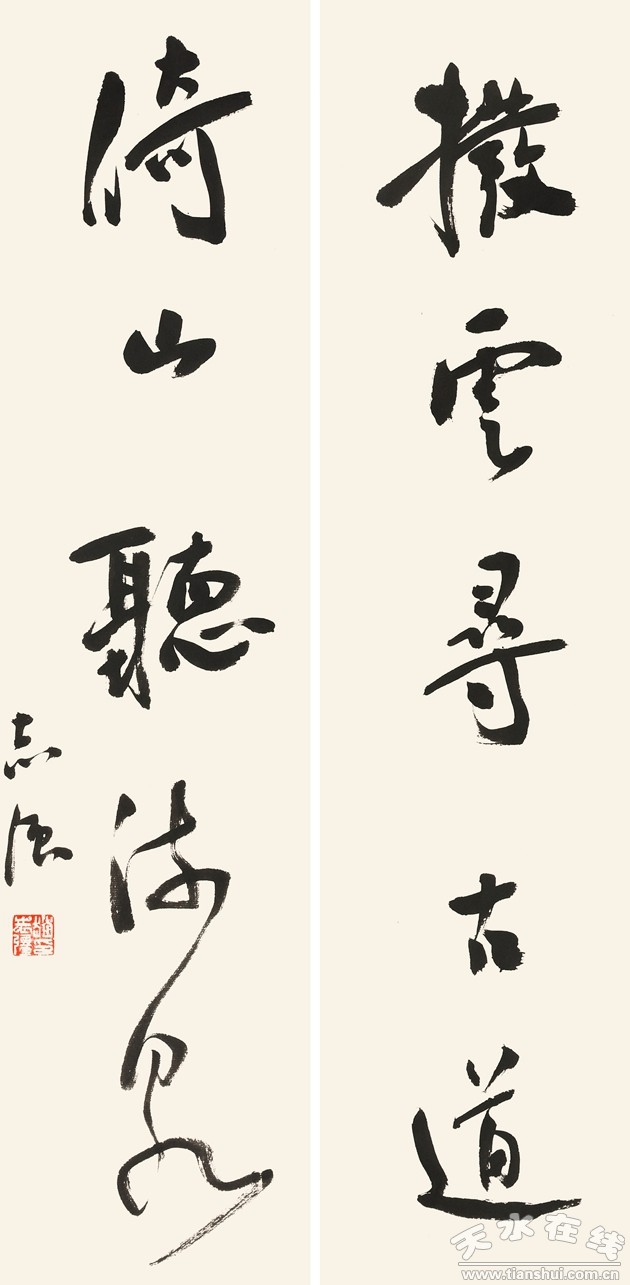 撥雲尋古道
倚山聽流泉
志強
天水在线
www.tianshui.com.cn